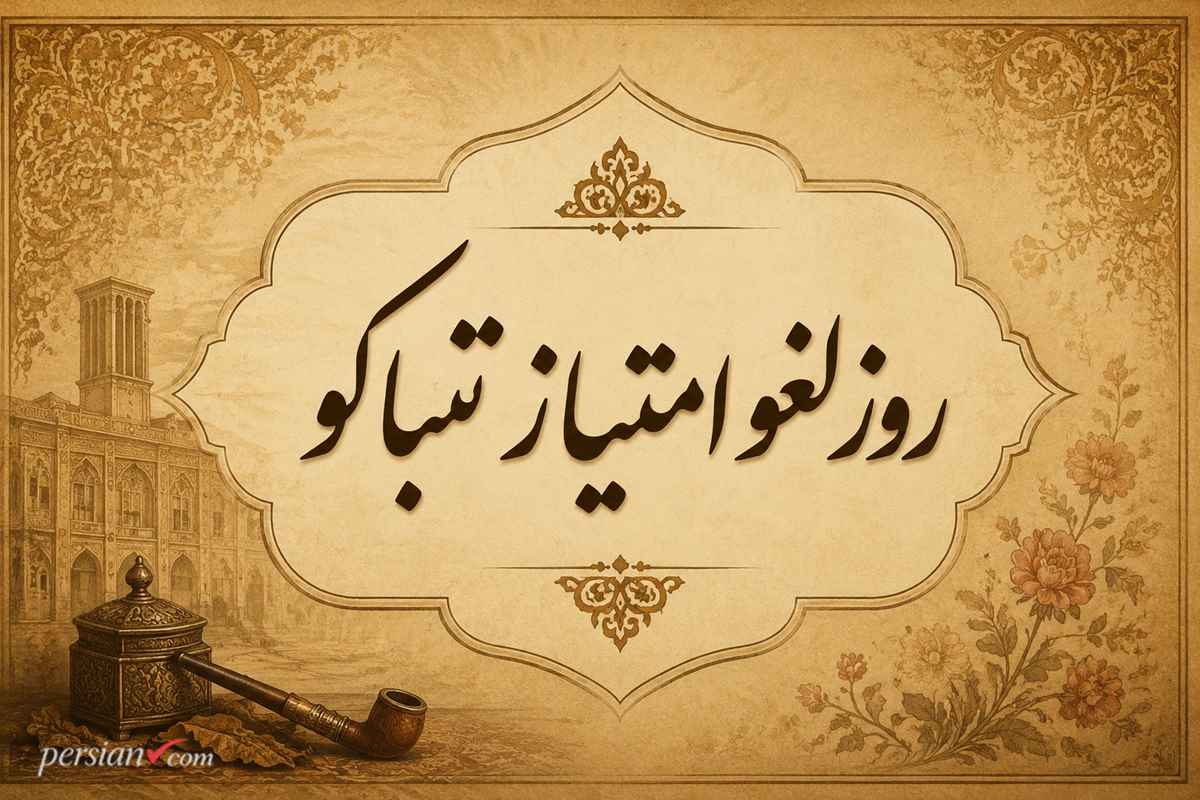 روز لغو امتیاز تنباکو
persianv.com